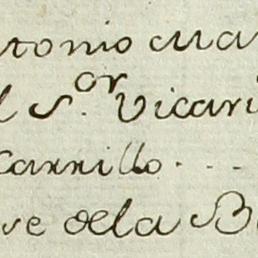 ntonio Ma
l S.or Vicari
Carrillo. . .
ve dela B